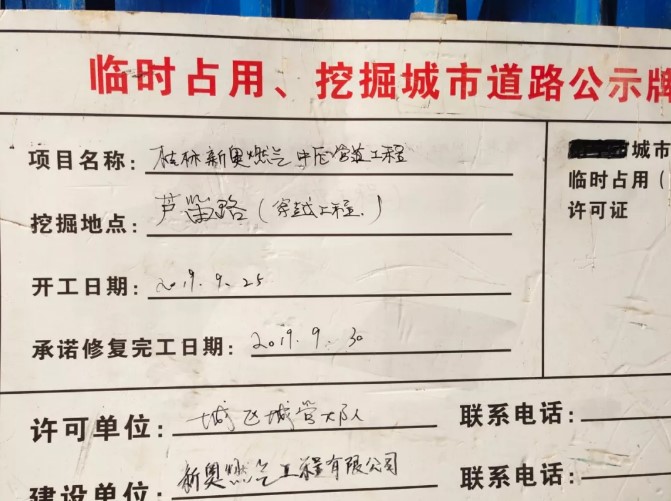 临时占用、挖掘城市道路公示牌
项目名称：桂林新奥燃气中压管道工程
挖掘地点：芦笛路（穿越工程.）
开工日期：2019.9.25
承诺修复完工日期：2019.9.30
城市
临时占用（
许可证
许可单位：城区城管大队
联系电话：
建设单位：新奥燃气工程有限公司
联系电话：